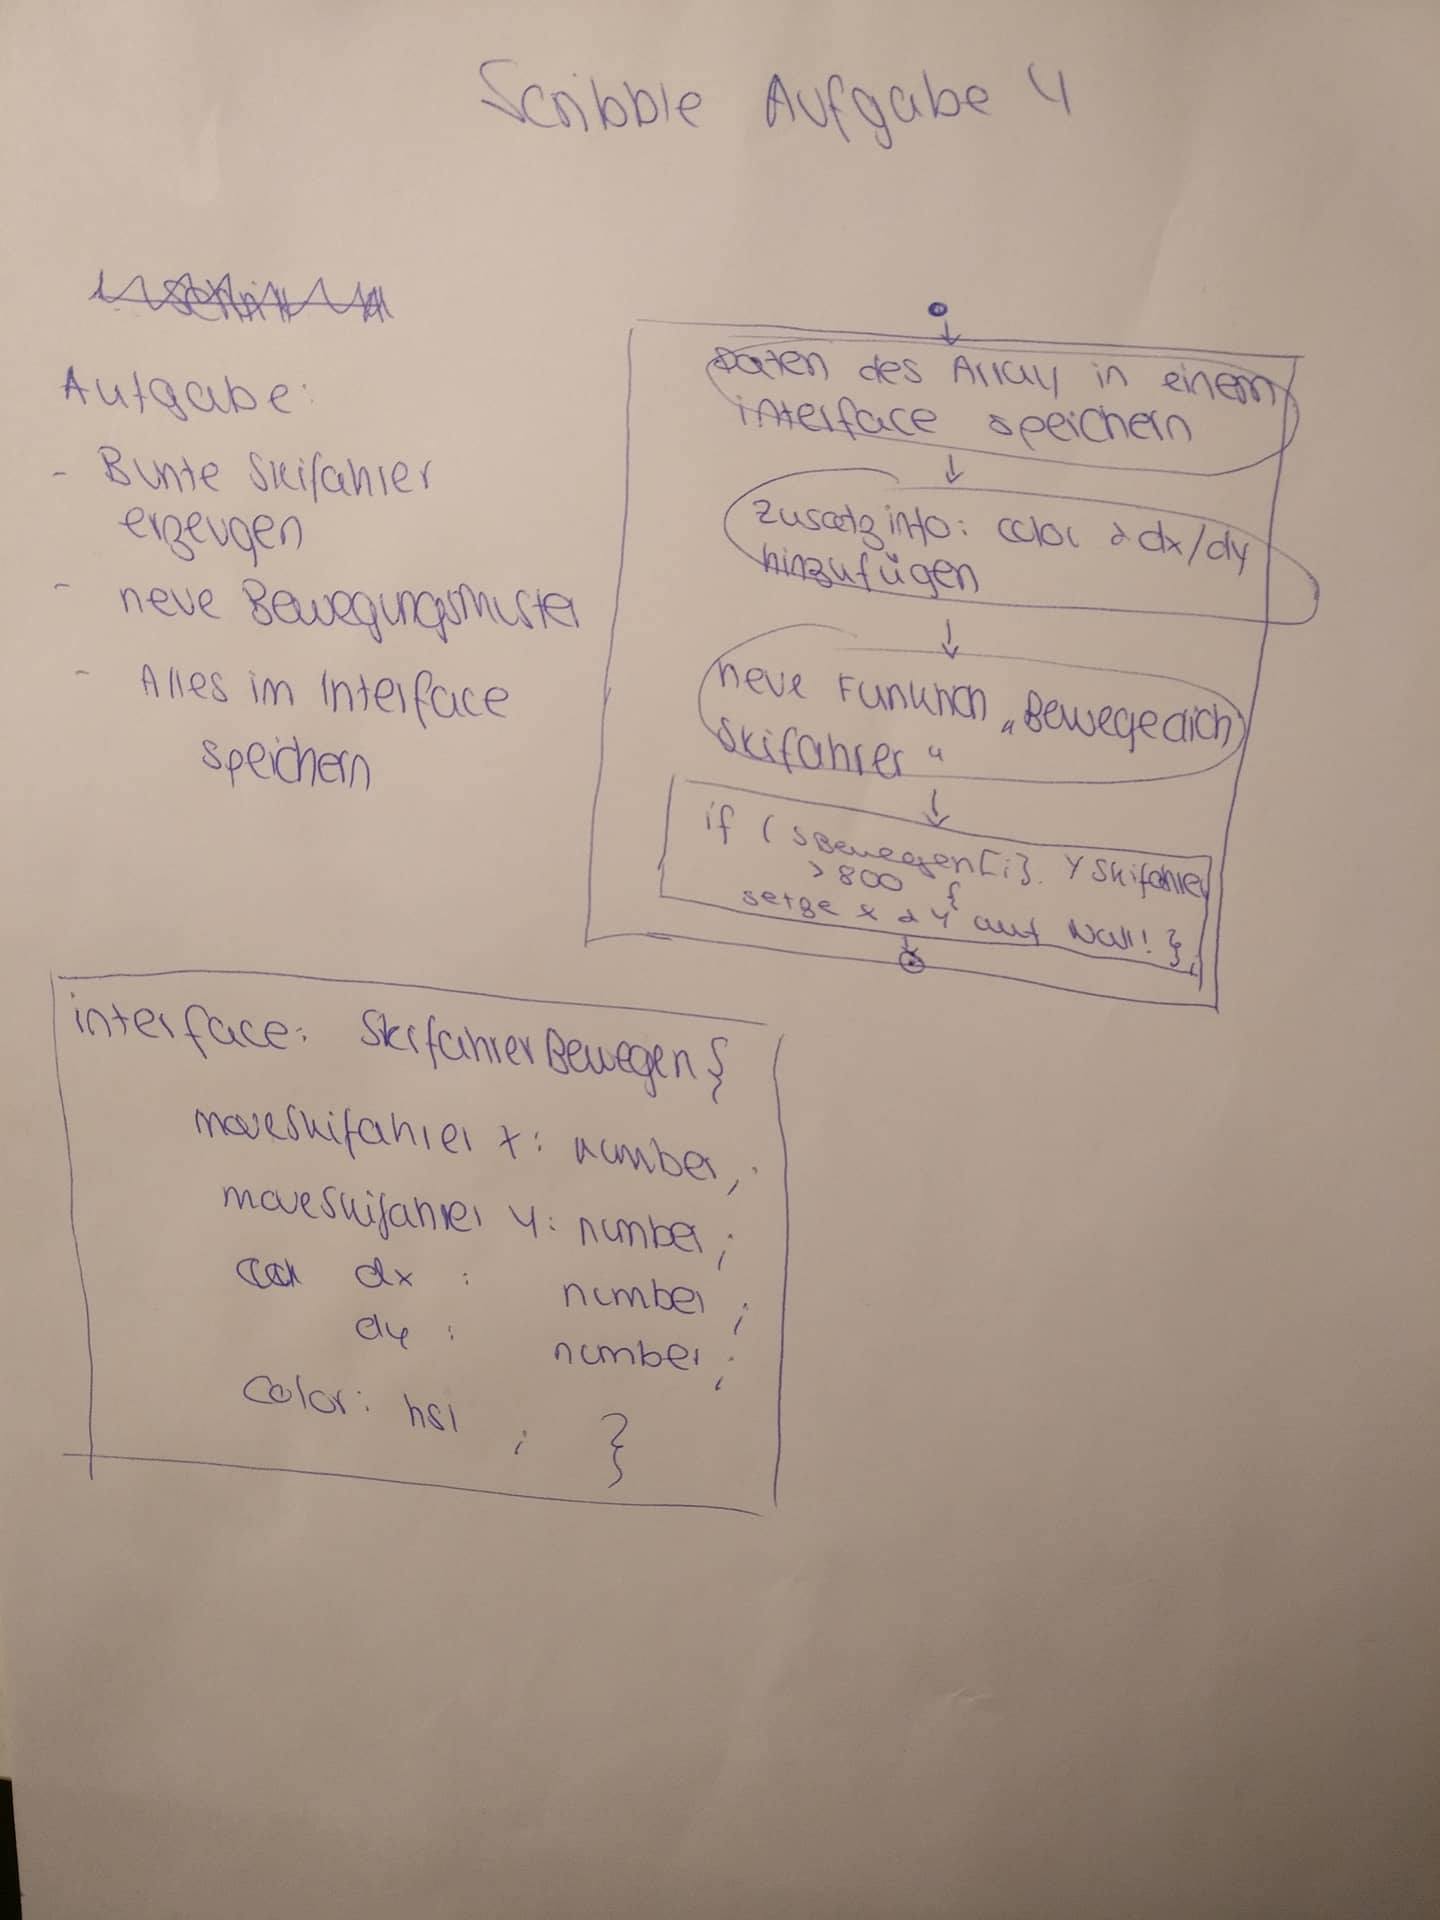 Scribble Aufgabe 4
Aufgabe:
- Bunte Skifahrer
erzeugen
- neue Bewegungsmuster
- Alles im Interface
speichern
Daten des Array in einem
interface speichern
Zusatzinfo: color & dx/dy
hinzufügen
neue Funktion „Bewegedich
Skifahrer"
if (sBewegen[i].YSkifahrer
>800 {
setze x & y auf Null! };
interface: SkifahrerBewegen{
moveSkifahrer x: number;
moveSkifahrer y: number;
dx : number;
dy : number;
Color: hsl ; }